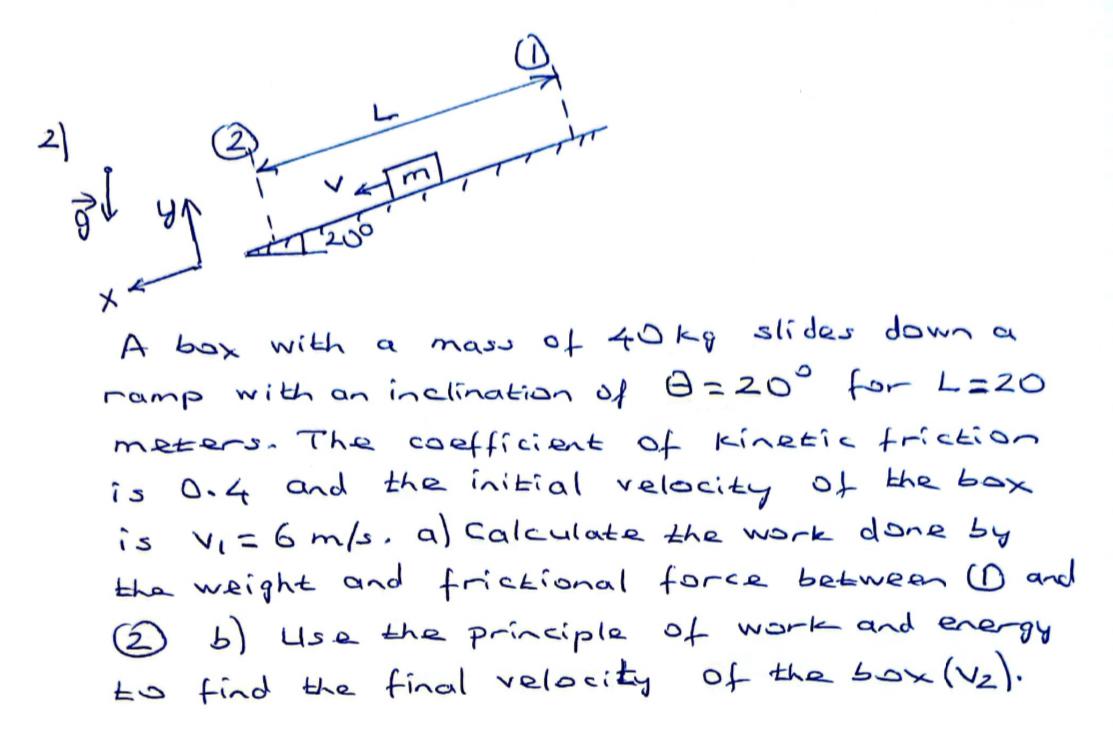 ①
L
2)
②
v
m
g
y
20°
x
A box with a mass of 40 kg slides down a
ramp with an inclination of θ = 20° for L = 20
meters. The coefficient of kinetic friction
is 0.4 and the initial velocity of the box
is v₁ = 6 m/s. a) Calculate the work done by
the weight and frictional force between ① and
② b) Use the principle of work and energy
to find the final velocity of the box (v₂).